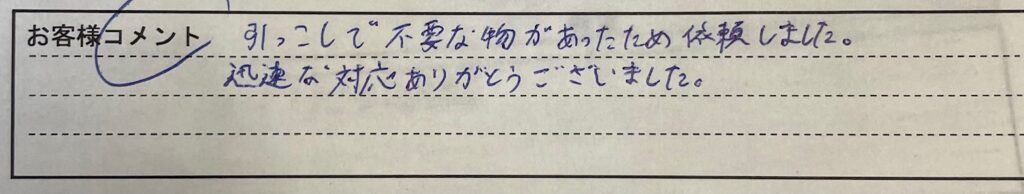 お客様コメント 引っこしで不要な物があったため依頼しました。
迅速な対応ありがとうございました。